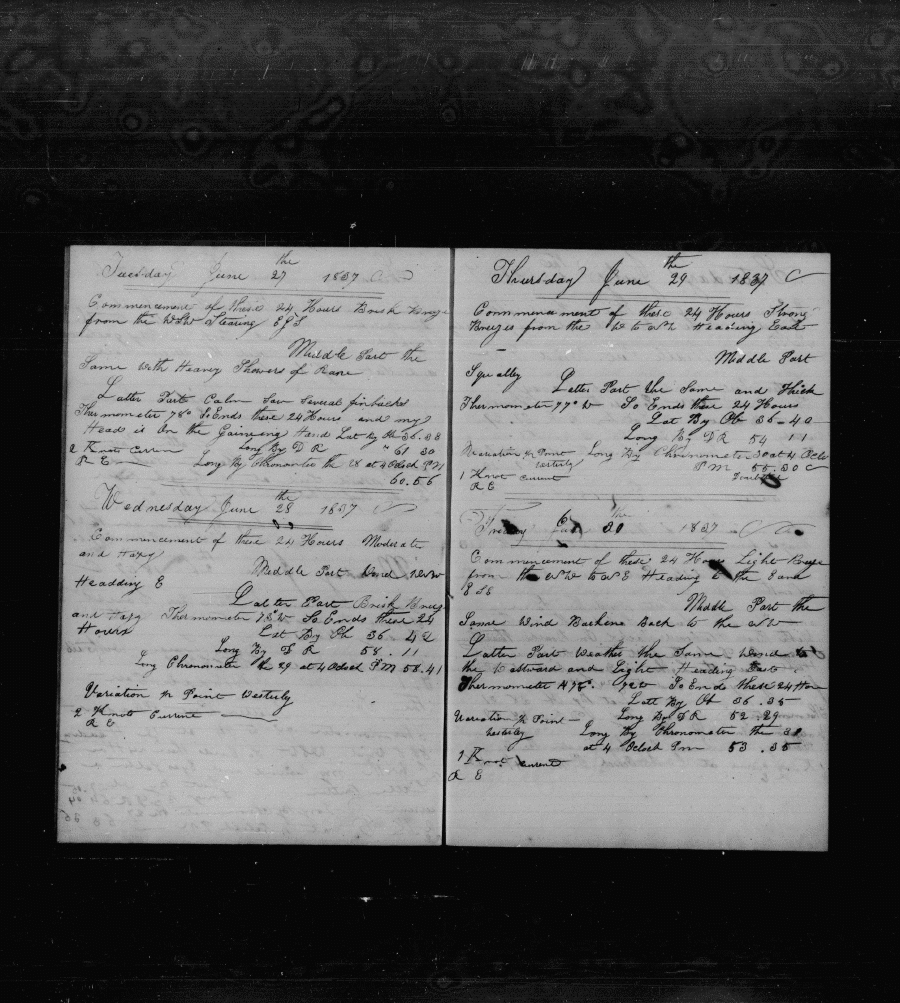 Tuesday June 27 the 1837
Commencement of these 24 Hours Brisk Breeze
from the WSW Stearing ESE
Middle Part the
Same With Heavey Showers of Rane
Latter Part Calm Saw Several finbacks
Thermometer 78° So Ends these 24 Hours and my
Head is On the Gaineing Hand Lat by Ob 36.38
2 Knots Current Long By D R " 61 30
A E Long By Chronomter the 28 at 4 Oclock PM
60.56
Wednesday June 28 the 1837
Commencement of these 24 Hours Moderate
and Hazy
Middle Part Wind WNW
Headding E
Latter Part Brisk Breeze
and Hazy Thermometer 78° So Ends these 24
Hours Lat By Ob 36 42
Long By D R 58 . 11
Long Chronometer the 29 at 4 Oclock PM 58.41
Variation ¾ Point Westerly
2 Knots Current
A E
Thursday June 29 the 1837
Commencement of these 24 Hours Strong
Breezes from the W to WN Heading East
Middle Part
Squalley Latter Part the Same and Thick
Thermometer 77° So Ends these 24 Hours
Lat By Ob 36-40
Long By DR 54 11
Variation ¾ Point Long By Chronometer 30 at 4 Oclo
Westerly PM 55.30
1 Knot Current
A E
Friday 30 the 1837
Commencement of these 24 Hours Light Breeze
from the WNW to WE Heading to the E and
ESE
Middle Part the
Same Wind Backing Back to the NW
Latter Part Weather the Same Wind to
the Westward and Light Heading East
Thermometer 78° So Ends these 24 Hou
Latt By Ob 36.35
Variation ¾ Point Long By DR 52.29
Westerly Long By Chronometer the 30
at 4 Oclock Pm 53.35
1 Knot Current
A E